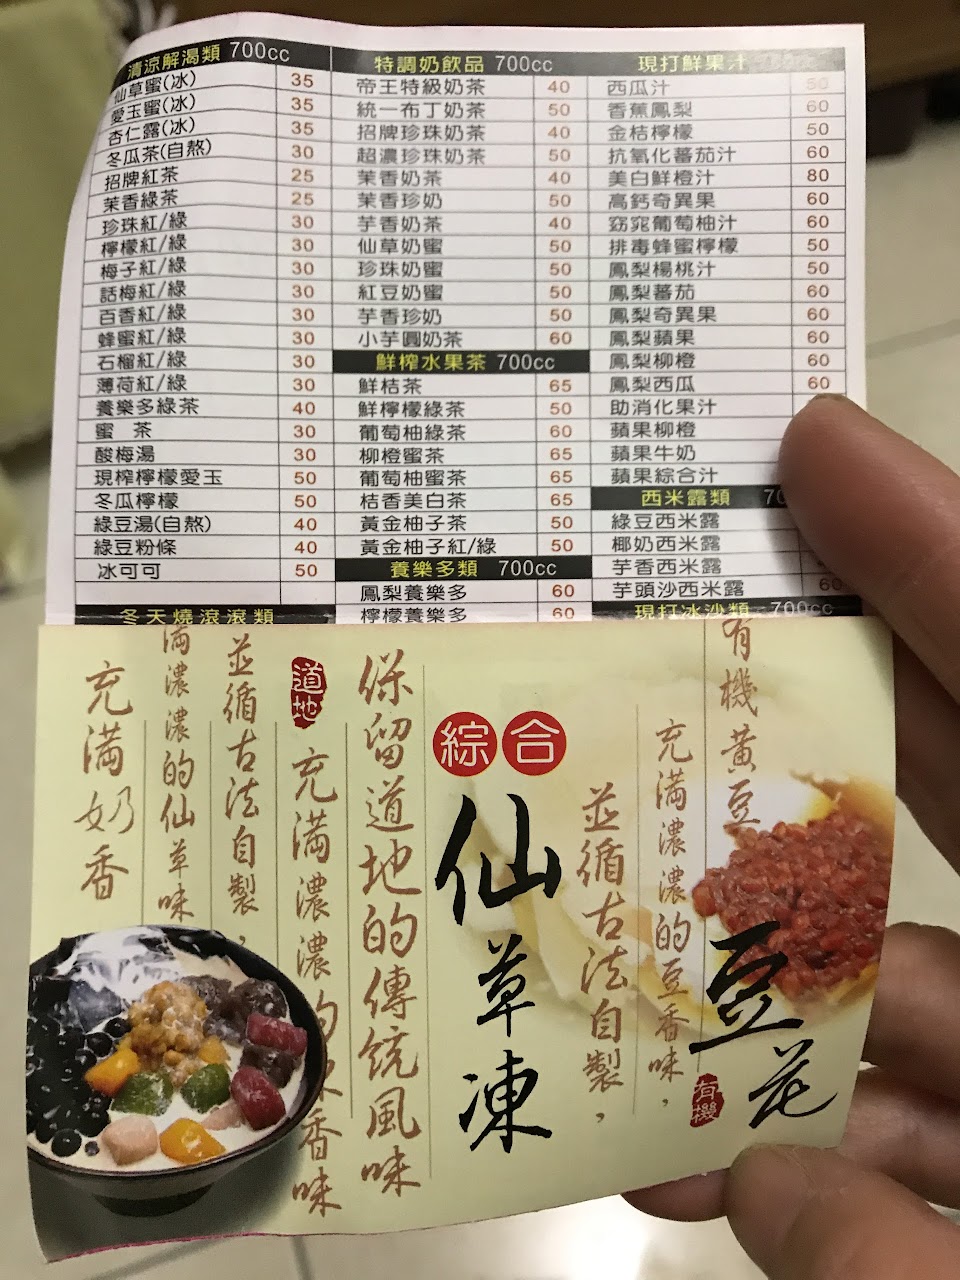 清涼解渴類 700cc
仙草蜜(冰) 35
愛玉蜜(冰) 35
杏仁露(冰) 35
冬瓜茶(自熬) 30
招牌紅茶 25
茉香綠茶 25
珍珠紅/綠 30
檸檬紅/綠 30
梅子紅/綠 30
話梅紅/綠 30
百香紅/綠 30
蜂蜜紅/綠 30
石榴紅/綠 30
薄荷紅/綠 30
養樂多綠茶 40
蜜 茶 30
酸梅湯 30
現榨檸檬愛玉 50
冬瓜檸檬 50
綠豆湯(自熬) 40
綠豆粉條 40
冰可可 50
冬天燒滾滾類
特調奶飲品 700cc
帝王特級奶茶 40
統一布丁奶茶 50
招牌珍珠奶茶 40
超濃珍珠奶茶 50
茉香奶茶 40
茉香珍奶 50
芋香奶茶 40
仙草奶蜜 50
珍珠奶蜜 50
紅豆奶蜜 50
芋香珍奶 50
小芋圓奶茶 60
鮮榨水果茶 700cc
鮮桔茶 65
鮮檸檬綠茶 50
葡萄柚綠茶 60
柳橙蜜茶 65
葡萄柚蜜茶 65
桔香美白茶 65
黃金柚子茶 50
黃金柚子紅/綠 50
養樂多類 700cc
鳳梨養樂多 60
檸檬養樂多 60
現打鮮果汁 700cc
西瓜汁 50
香蕉鳳梨 60
金桔檸檬 50
抗氧化蕃茄汁 60
美白鮮橙汁 80
高鈣奇異果 60
窈窕葡萄柚汁 60
排毒蜂蜜檸檬 50
鳳梨楊桃汁 50
鳳梨蕃茄 60
鳳梨奇異果 60
鳳梨蘋果 60
鳳梨柳橙 60
鳳梨西瓜 60
助消化果汁
蘋果柳橙
蘋果牛奶
蘋果綜合汁
西米露類
綠豆西米露
椰奶西米露
芋香西米露
芋頭沙西米露 60
現打冰沙類 700cc
有機黃豆
豆花
有機
充滿濃濃的豆香味，
並循古法自製，
綜合
仙草凍
保留道地的傳統風味
道地
充滿濃濃的 香味
並循古法自製，
滿濃濃的仙草味
充滿奶香